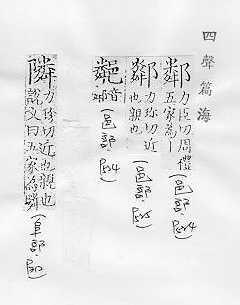 四聲篇海
鄰
力臣切周禮
五家為｜
(邑部.
力珍切近
也親也
(邑部.
音
(邑部.
隣
力珍切近也親也
說文曰五家為鄰
(阜部.